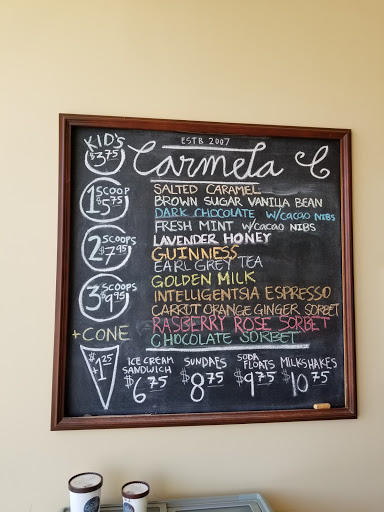 ESTB 2007
Carmela C
KID'S
$3.75
1 SCOOP
$5.75
2 SCOOPS
$7.95
3 SCOOPS
$9.95
+CONE
$+1.25
SALTED CARAMEL
BROWN SUGAR VANILLA BEAN
DARK CHOCOLATE w/CACAO NIBS
FRESH MINT w/CACAO NIBS
LAVENDER HONEY
GUINNESS
EARL GREY TEA
GOLDEN MILK
INTELLIGENTSIA ESPRESSO
CARROT ORANGE GINGER SORBET
RASBERRY ROSE SORBET
CHOCOLATE SORBET
ICE CREAM
SANDWICH
$6.75
SUNDAES
$8.75
SODA
FLOATS
$9.75
MILKSHAKES
$10.75